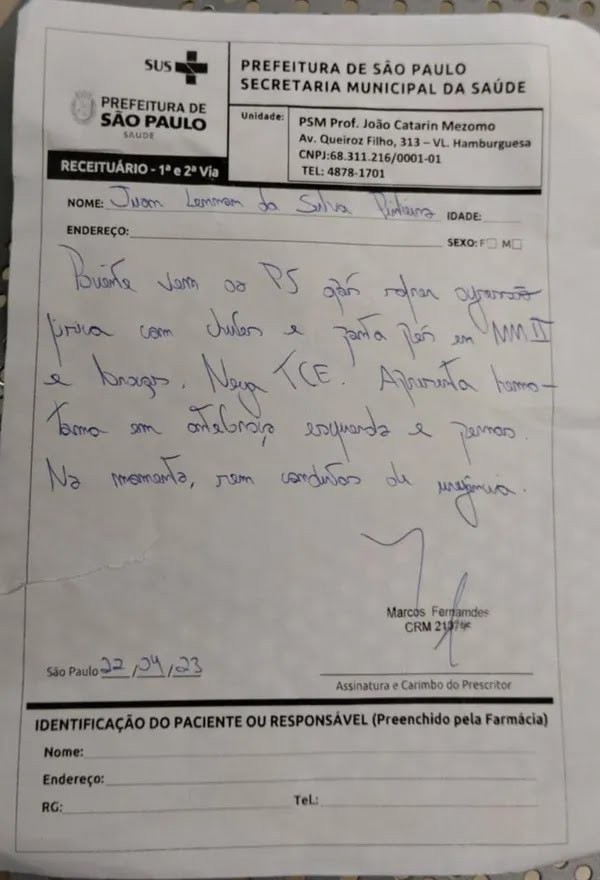 SUS
PREFEITURA DE
SÃO PAULO
SAÚDE
PREFEITURA DE SÃO PAULO
SECRETARIA MUNICIPAL DA SAÚDE
Unidade:
PSM Prof. João Catarin Mezomo
Av. Queiroz Filho, 313 – VL. Hamburguesa
CNPJ:68.311.216/0001-01
TEL: 4878-1701
RECEITUÁRIO - 1ª e 2ª Via
NOME: Juan da Silva IDADE:
ENDEREÇO: SEXO: F M
Paciente vem ao PS após sofrer agressão
física com chutes e ponta pés em MMII
e braços. Nega TCE. Apresenta hema-
toma em antebraço esquerdo e pernas.
No momento, sem condutas de urgência.
Marcos Fernamdes
CRM
São Paulo 22/04/23
Assinatura e Carimbo do Prescritor
IDENTIFICAÇÃO DO PACIENTE OU RESPONSÁVEL (Preenchido pela Farmácia)
Nome:
Endereço:
RG: Tel.: